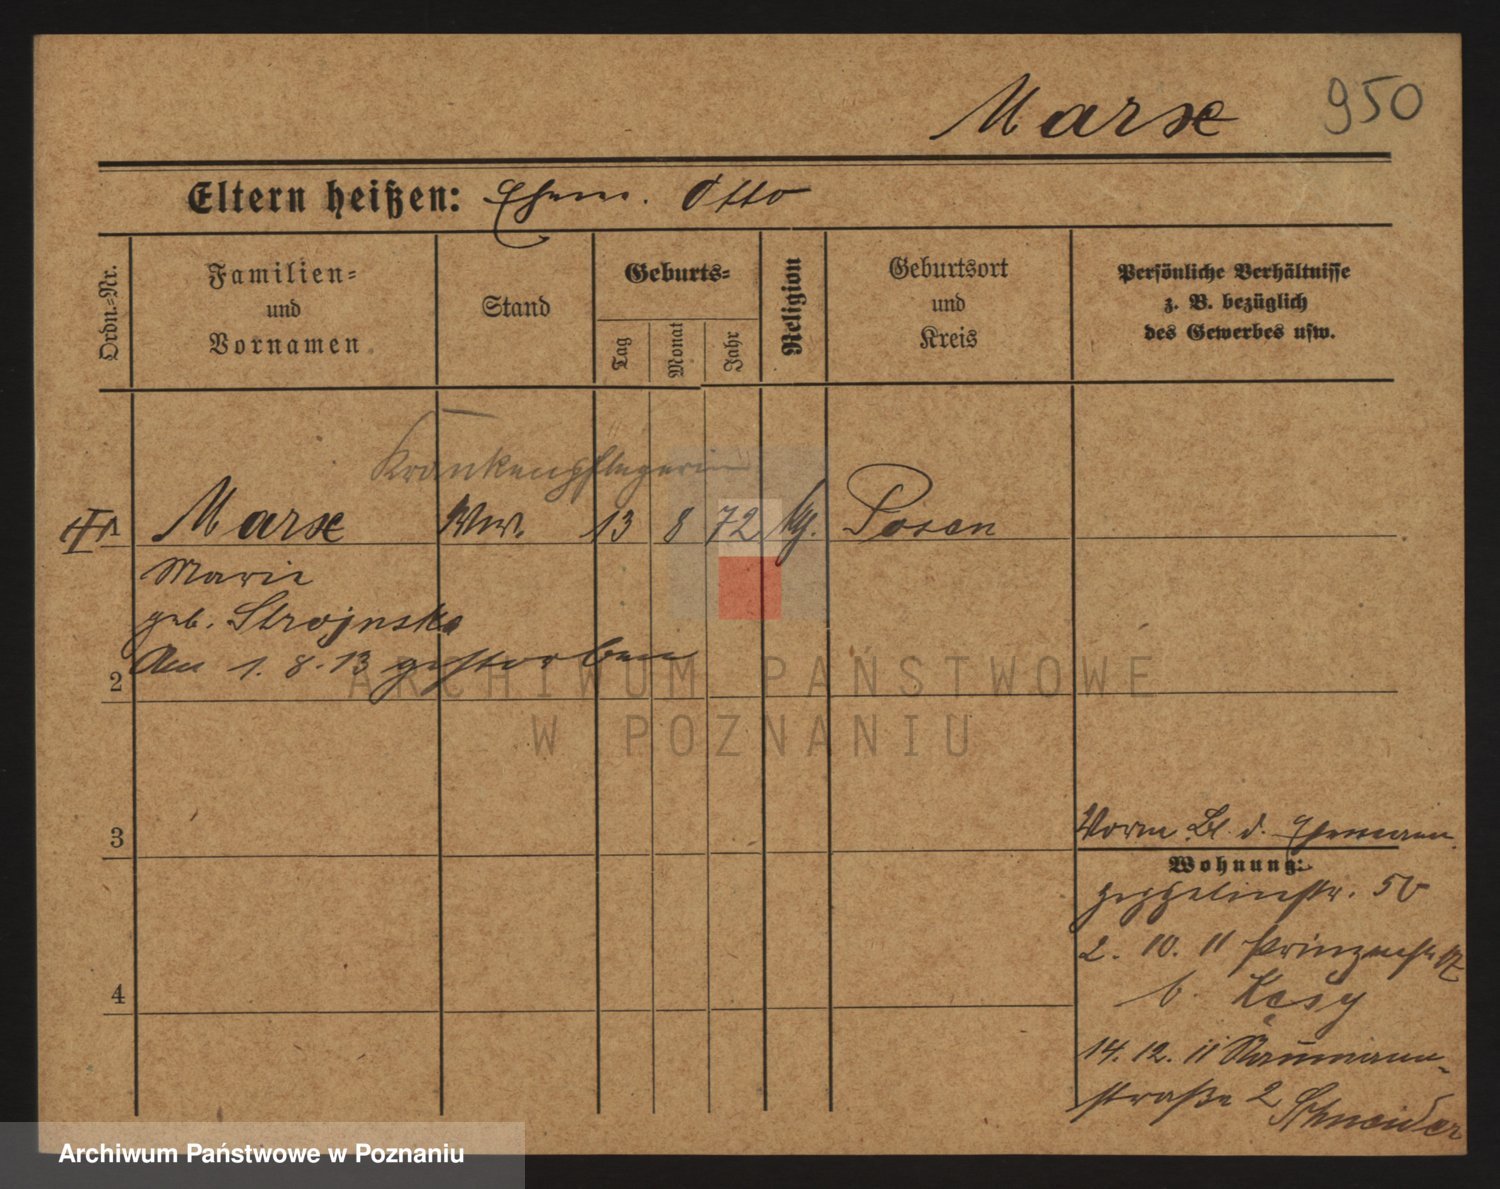 Marx 950
Eltern heißen: Ehem. Otto
Ordn.=Nr.
Familien=
und
Vornamen
Stand
Geburts=
Tag
Monat
Jahr
Religion
Geburtsort
und
Kreis
Persönliche Verhältnisse
z. B. bezüglich
des Gewerbes usw.
Krankenpflegerin
1 Marx Ww. 13 8 72 Posen
Marie
geb. Strojnska
Am 1.8.13 gestorben
2
3
4
Vorm Bl. d. Ehemann
Wohnung:
Zeppelinstr. 5b
2. 10. 11 Prinzenstr
b.
14. 12. 11 Naumann-
straße 2 Schneider
ARCHIWUM PAŃSTWOWE
W POZNANIU
Archiwum Państwowe w Poznaniu